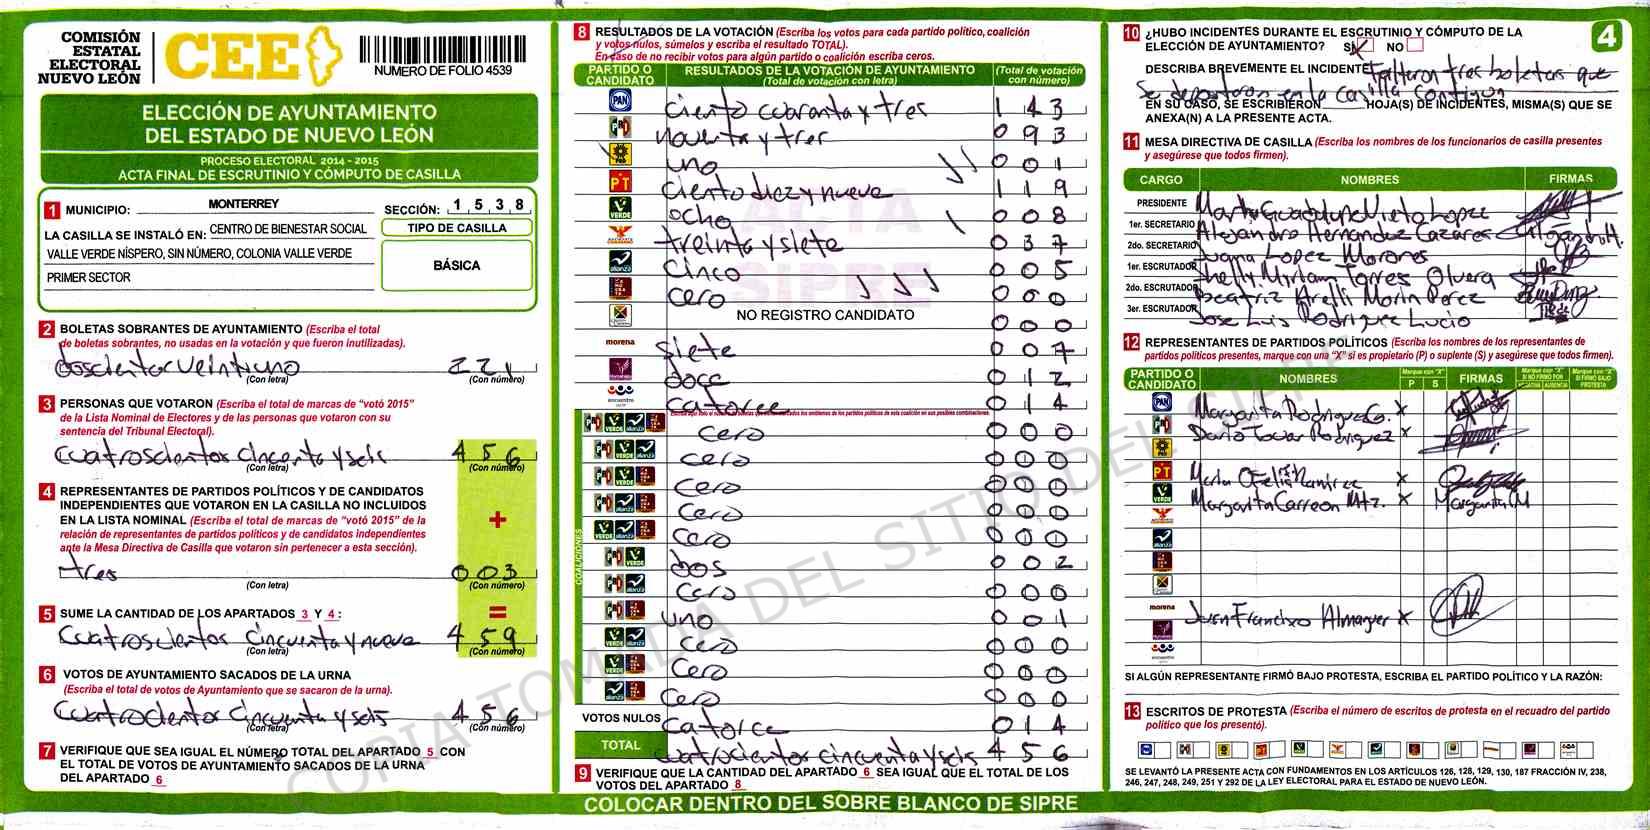 COMISIÓN
ESTATAL
ELECTORAL
NUEVO LEÓN
CEE
NUMERO DE FOLIO 4539
ELECCIÓN DE AYUNTAMIENTO
DEL ESTADO DE NUEVO LEÓN
PROCESO ELECTORAL 2014 - 2015
ACTA FINAL DE ESCRUTINIO Y CÓMPUTO DE CASILLA
1 MUNICIPIO: MONTERREY SECCIÓN: 1 5 3 8
LA CASILLA SE INSTALÓ EN: CENTRO DE BIENESTAR SOCIAL
VALLE VERDE NÍSPERO, SIN NÚMERO, COLONIA VALLE VERDE
PRIMER SECTOR
TIPO DE CASILLA
BÁSICA
2 BOLETAS SOBRANTES DE AYUNTAMIENTO (Escriba el total
de boletas sobrantes, no usadas en la votación y que fueron inutilizadas).
doscientos veintiuno 221
(Con letra) (Con número)
3 PERSONAS QUE VOTARON (Escriba el total de marcas de “votó 2015”
de la Lista Nominal de Electores y de las personas que votaron con su
sentencia del Tribunal Electoral).
cuatroscientos cincuenta y seis 456
(Con letra) (Con número)
4 REPRESENTANTES DE PARTIDOS POLÍTICOS Y DE CANDIDATOS
INDEPENDIENTES QUE VOTARON EN LA CASILLA NO INCLUIDOS
EN LA LISTA NOMINAL (Escriba el total de marcas de “votó 2015” de la
relación de representantes de partidos políticos y de candidatos independientes
ante la Mesa Directiva de Casilla que votaron sin pertenecer a esta sección).
+
tres 003
(Con letra) (Con número)
=
5 SUME LA CANTIDAD DE LOS APARTADOS 3 Y 4 :
cuatroscientos cincuenta y nueve 459
(Con letra) (Con número)
6 VOTOS DE AYUNTAMIENTO SACADOS DE LA URNA
(Escriba el total de votos de Ayuntamiento que se sacaron de la urna).
456
(Con letra) (Con número)
7 VERIFIQUE QUE SEA IGUAL EL NÚMERO TOTAL DEL APARTADO 5 CON
EL TOTAL DE VOTOS DE AYUNTAMIENTO SACADOS DE LA URNA
DEL APARTADO 6
8 RESULTADOS DE LA VOTACIÓN (Escriba los votos para cada partido político, coalición
y votos nulos, súmelos y escriba el resultado TOTAL).
En caso de no recibir votos para algún partido o coalición escriba ceros.
PARTIDO O CANDIDATO RESULTADOS DE LA VOTACIÓN DE AYUNTAMIENTO (Total de votación con letra) (Total de votación con número)
PAN ciento cuaranta y tres 1 4 3
PRI noventa y tres 0 9 3
PRD uno 0 0 1
PT ciento diez y nueve 1 1 9
VERDE ocho 0 0 8
treinta y siete 0 3 7
alianza cinco 0 0 5
cero 0 0 0
NO REGISTRO CANDIDATO
0 0 0
morena siete 0 0 7
doce 0 1 2
encuentro catorce 0 1 4
COALICIONES
cero 0 0 0
cero 0 0 0
cero 0 0 0
cero 0 0 0
cero 0 0 0
dos 0 0 2
cero 0 0 0
uno 0 0 1
cero 0 0 0
cero 0 0 0
cero 0 0 0
VOTOS NULOS catorce 0 1 4
TOTAL cuatrocientos cincuenta y seis 4 5 6
9 VERIFIQUE QUE LA CANTIDAD DEL APARTADO 6 SEA IGUAL QUE EL TOTAL DE LOS
VOTOS DEL APARTADO 8
ACTA
SIPRE
COLOCAR DENTRO DEL SOBRE BLANCO DE SIPRE
COPIA TOMADA DEL SITIO DEL SIPRE
4
10 ¿HUBO INCIDENTES DURANTE EL ESCRUTINIO Y CÓMPUTO DE LA
ELECCIÓN DE AYUNTAMIENTO? SI NO
DESCRIBA BREVEMENTE EL INCIDENTE Faltaron tres boletas que
Se depositaron en la casilla contigua
EN SU CASO, SE ESCRIBIERON HOJA(S) DE INCIDENTES, MISMA(S) QUE SE
ANEXA(N) A LA PRESENTE ACTA.
11 MESA DIRECTIVA DE CASILLA (Escriba los nombres de los funcionarios de casilla presentes
y asegúrese que todos firmen).
CARGO NOMBRES FIRMAS
PRESIDENTE Martha Guadalupe Nieto Lopez
1er. SECRETARIO Alejandro Hernandez Cazares Alejandro H.
2do. SECRETARIO Juana Lopez Morones
1er. ESCRUTADOR Shelly Myriam Torres Olvera
2do. ESCRUTADOR Beatriz Arelli Morin Perez
3er. ESCRUTADOR Jose Luis Rodriguez Lucio
12 REPRESENTANTES DE PARTIDOS POLÍTICOS (Escriba los nombres de los representantes de
partidos políticos presentes, marque con una “X” si es propietario (P) o suplente (S) y asegúrese que todos firmen).
PARTIDO O CANDIDATO NOMBRES Marque con “X” P S FIRMAS Marque con “X” SI NO FIRMÓ POR NEGATIVA AUSENCIA Marque con “X” SI FIRMÓ BAJO PROTESTA
PAN Margarita Rodriguez G. X
PRI Dario Tovar Rodriguez X
PRD
PT Maria Ofelia Ramirez X
VERDE Margarita Carreon Mtz. X Margarita M
alianza
morena Juan Francisco Almaguer X
encuentro
SI ALGÚN REPRESENTANTE FIRMÓ BAJO PROTESTA, ESCRIBA EL PARTIDO POLÍTICO Y LA RAZÓN:
13 ESCRITOS DE PROTESTA (Escriba el número de escritos de protesta en el recuadro del partido
político que los presentó).
SE LEVANTÓ LA PRESENTE ACTA CON FUNDAMENTOS EN LOS ARTÍCULOS 126, 128, 129, 130, 187 FRACCIÓN IV, 238,
246, 247, 248, 249, 251 Y 292 DE LA LEY ELECTORAL PARA EL ESTADO DE NUEVO LEÓN.